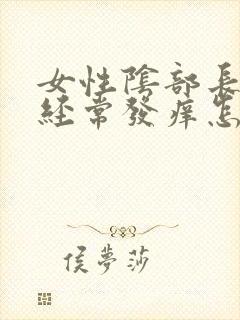 女性陰部長
經常發癢怎
侯夢莎